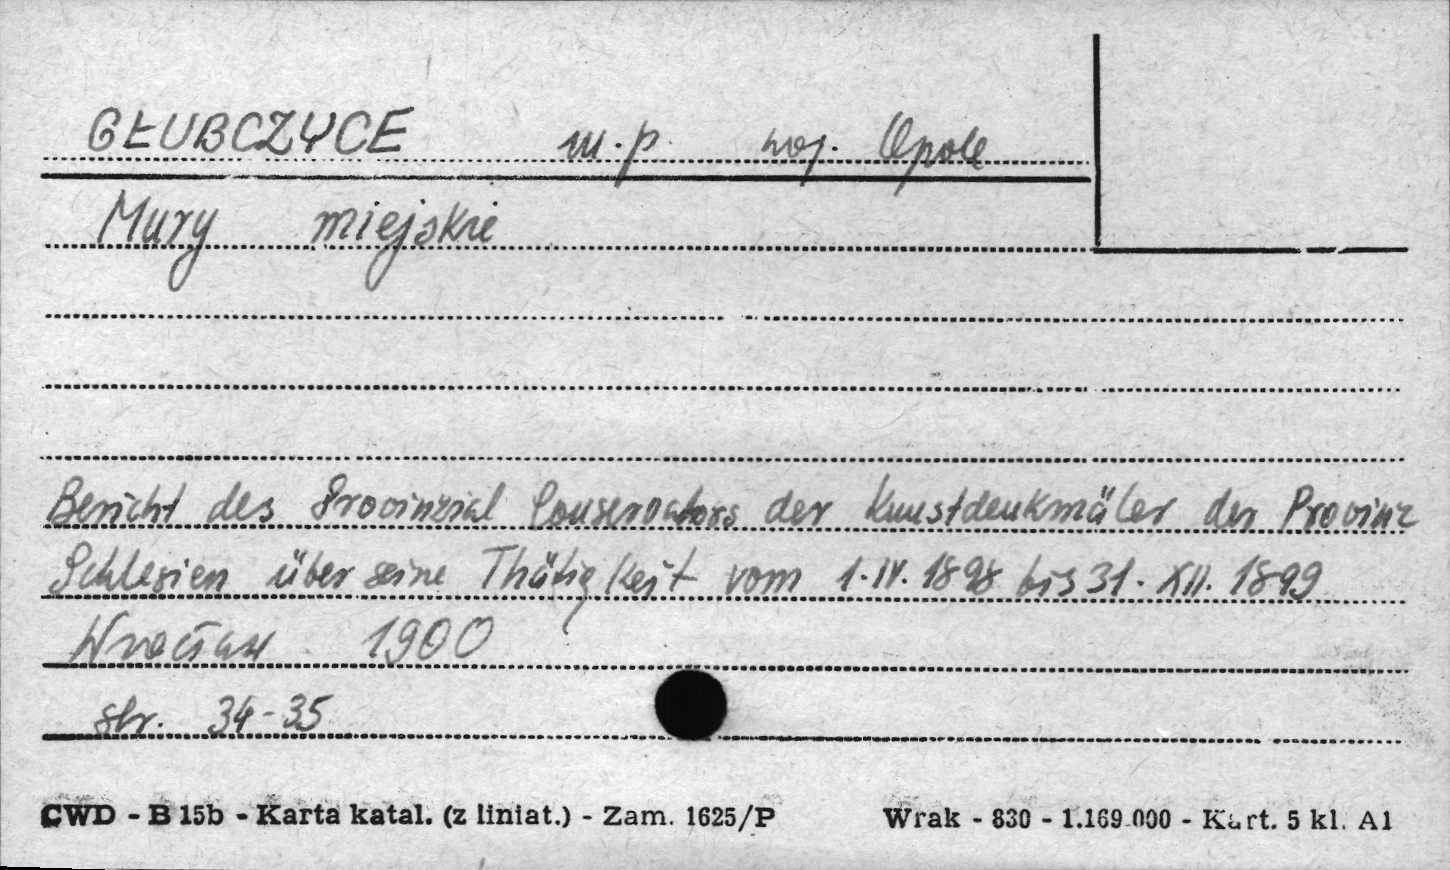 GŁUBCZYCE m.p. woj. Opole
Mury miejskie
Bericht des Provinzial Conservators der Kunstdenkmäler der Provinz
Schlesien über seine Thätigkeit vom 1.IV.1898 bis 31.XII.1899
Wrocław 1900
str. 34-35
CWD - B 15b - Karta katal. (z liniat.) - Zam. 1625/P Wrak - 830 - 1.169.000 - Kart. 5 kl. A1